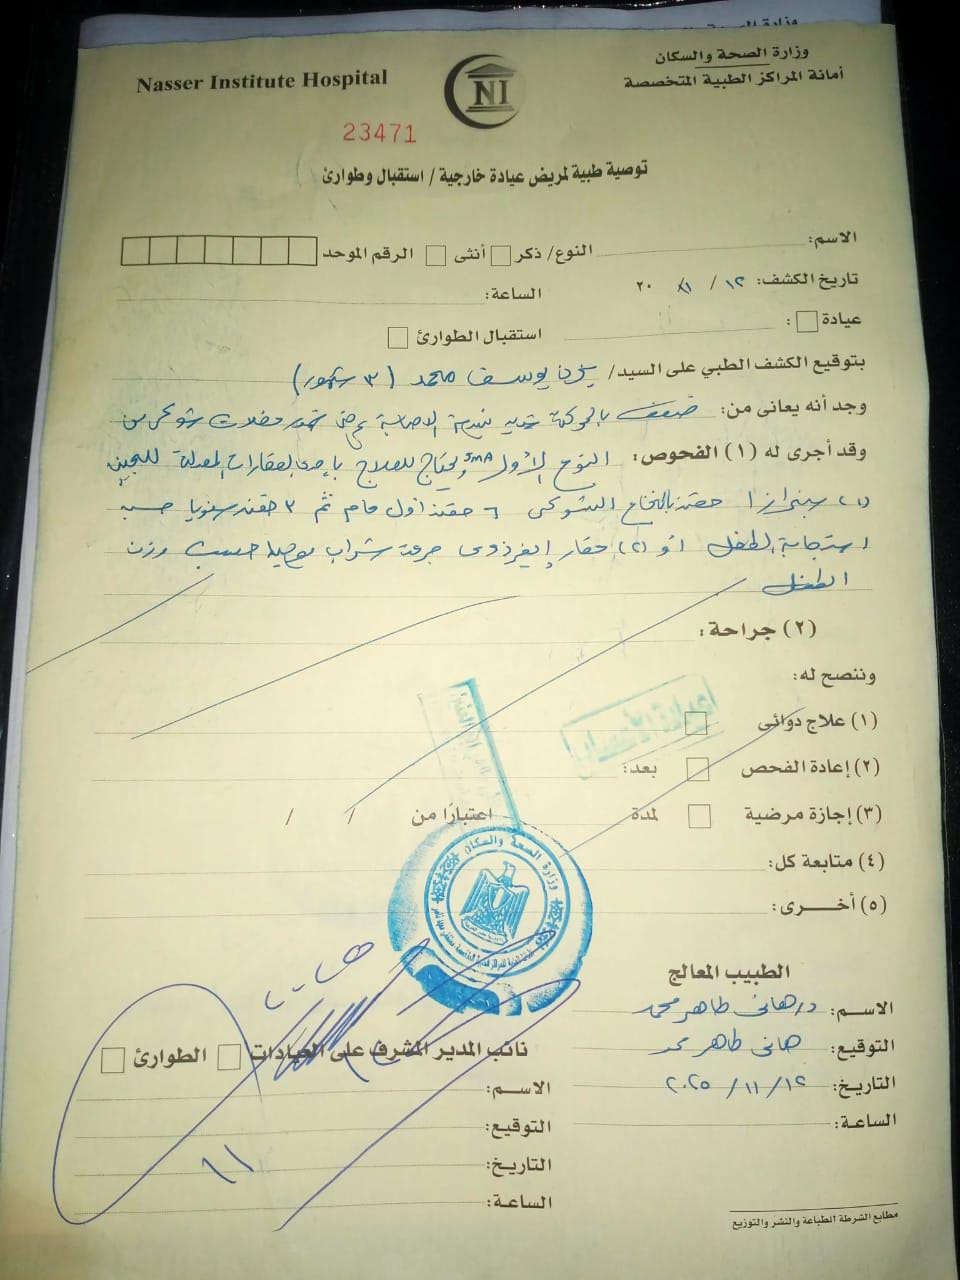 وزارة الصحة والسكان
أمانة المراكز الطبية المتخصصة
Nasser Institute Hospital
NI
23471
توصية طبية لمريض عيادة خارجية / استقبال وطوارئ
الاسم:
النوع/ ذكر أنثى الرقم الموحد
تاريخ الكشف: ١٢ / ١١ / ٢٠
الساعة:
عيادة :
استقبال الطوارئ
بتوقيع الكشف الطبي على السيد/ يوسف محمد (٣ شهور)
وجد أنه يعانى من: ضعف بالحركة شديد نتيجة الاصابة بمرض ضمور عضلات شوكى من
وقد أجرى له (١) الفحوص: النوع الأول SMA ويحتاج للعلاج بإحدى العقارات المعدلة للجين
(١) سبنرازا حقن بالنخاع الشوكى ٦ حقن أول عام ثم ٣ حقن سنويا حسب
استجابة الطفل أو (٢) عقار إيفرزدى جرعة شراب يوميا حسب وزن
الطفل
(٢) جراحة:
وننصح له:
(١) علاج دوائى
(٢) إعادة الفحص بعد:
(٣) إجازة مرضية لمدة اعتبارًا من / /
(٤) متابعة كل:
(٥) أخرى:
وزارة الصحة والسكان
الطبيب المعالج
الاسم: د. هانى طاهر محمد
التوقيع: هانى طاهر محمد
التاريخ: ١٢ / ١١ / ٢٠٢٥
الساعة:
نائب المدير المشرف على العيادات الطوارئ
الاسم:
التوقيع:
التاريخ:
الساعة:
مطابع الشرطة للطباعة والنشر والتوزيع